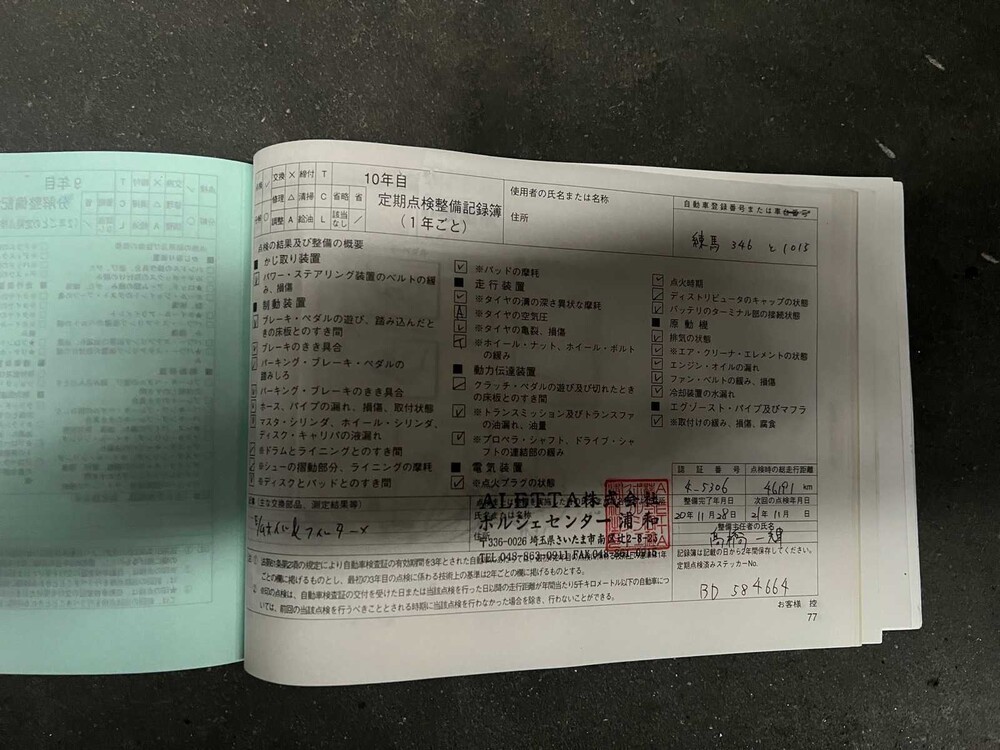 交換 × 締付 T
修理 △ 清掃 C 省略 省
調整 A 給油 L 該当なし ／
10年目
定期点検整備記録簿
（1年ごと）
使用者の氏名または名称
住所
自動車登録番号または車台番号
練馬 346 と 1015
点検の結果及び整備の概要
■ かじ取り装置
パワー・ステアリング装置のベルトの緩み、損傷
■ 制動装置
ブレーキ・ペダルの遊び、踏み込んだときの床板とのすき間
ブレーキのきき具合
パーキング・ブレーキ・ペダルの踏みしろ
パーキング・ブレーキのきき具合
ホース、パイプの漏れ、損傷、取付状態
マスタ・シリンダ、ホイール・シリンダ、ディスク・キャリパの液漏れ
※ドラムとライニングとのすき間
※シューの摺動部分、ライニングの摩耗
※ディスクとパッドとのすき間
※パッドの摩耗
■ 走行装置
※タイヤの溝の深さ異状な摩耗
※タイヤの空気圧
※タイヤの亀裂、損傷
※ホイール・ナット、ホイール・ボルトの緩み
■ 動力伝達装置
クラッチ・ペダルの遊び及び切れたときの床板とのすき間
※トランスミッション及びトランスファの油漏れ、油量
※プロペラ・シャフト、ドライブ・シャフトの連結部の緩み
■ 電気装置
※点火プラグの状態
点火時期
ディストリビュータのキャップの状態
バッテリのターミナル部の接続状態
■ 原動機
排気の状態
※エア・クリーナ・エレメントの状態
エンジン・オイルの漏れ
ファン・ベルトの緩み、損傷
冷却装置の水漏れ
■ エグゾースト・パイプ及びマフラ
※取付けの緩み、損傷、腐食
（主な交換部品、測定結果等）
ALETTA株式会社
ポルシェセンター浦和
〒336-0026 埼玉県さいたま市南区辻2-8-25
TEL 048-863-0911
認証番号
4-5306
点検時の総走行距離
km
整備完了年月日
20年11月28日
次回の点検年月日
21年11月 日
整備主任者の氏名
記録簿は記載の日から2年間保存してください。
定期点検済みステッカーNo.
BD 584664
の規定により自動車検査証の有効期間を3年とされた自
ごとの欄に掲げるものとし、最初の3年目の点検に係わる技術上の基準は2年ごとの欄に掲げるものとする。
の点検は、自動車検査証の交付を受けた日または当該点検を行った日以降の走行距離が年間当り5千キロメートル以下の自動車につ
いては、前回の当該点検を行うべきこととされる時期に当該点検を行わなかった場合を除き、行わないことができる。
お客様 控
77